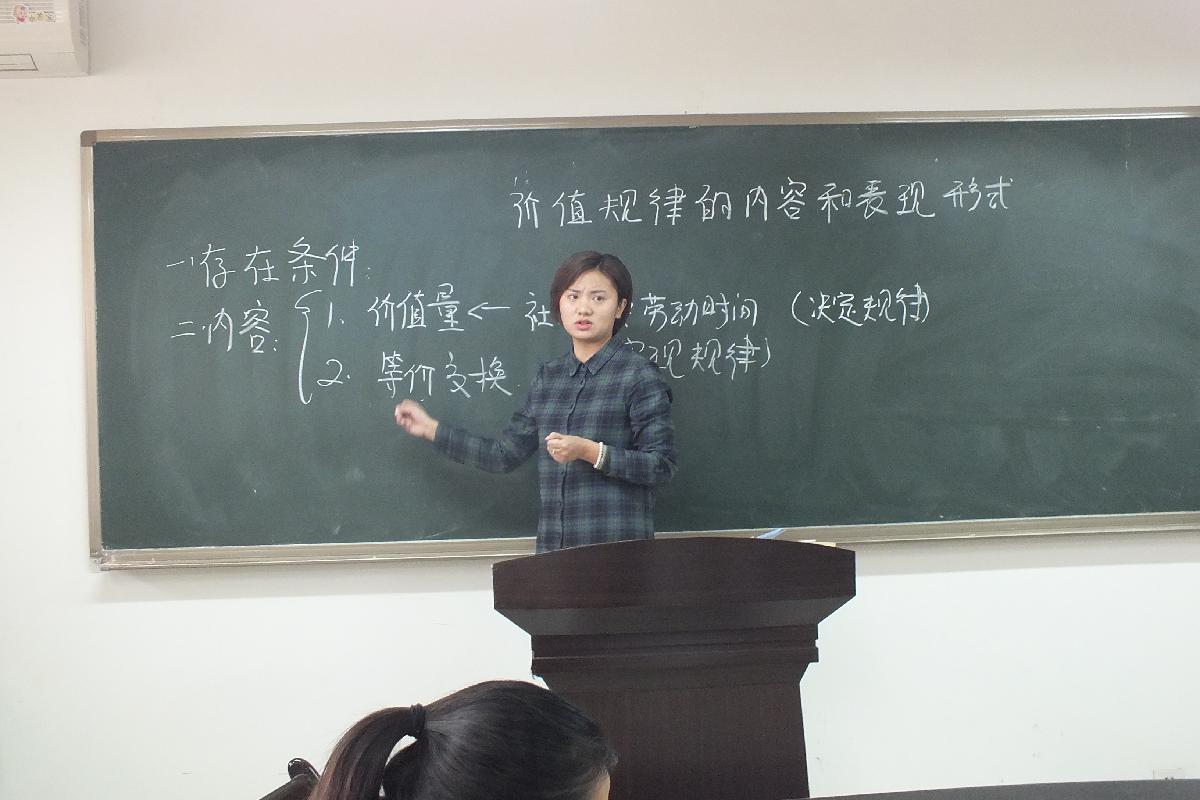 价值规律的内容和表现形式
一、存在条件：
二、内容：
1. 价值量← 社 劳动时间 （决定规律）
2. 等价交换 实现规律）